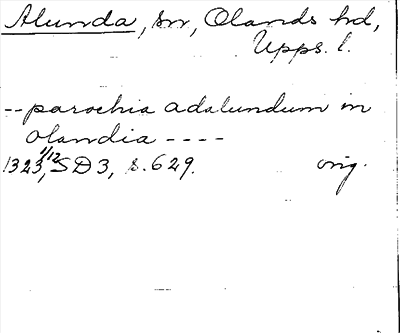 Alunda, sn, Olands hd,
Upps. l.
-- parochia adalundum in
olandia ----
1323 1/12, SD 3, s. 629. orig.